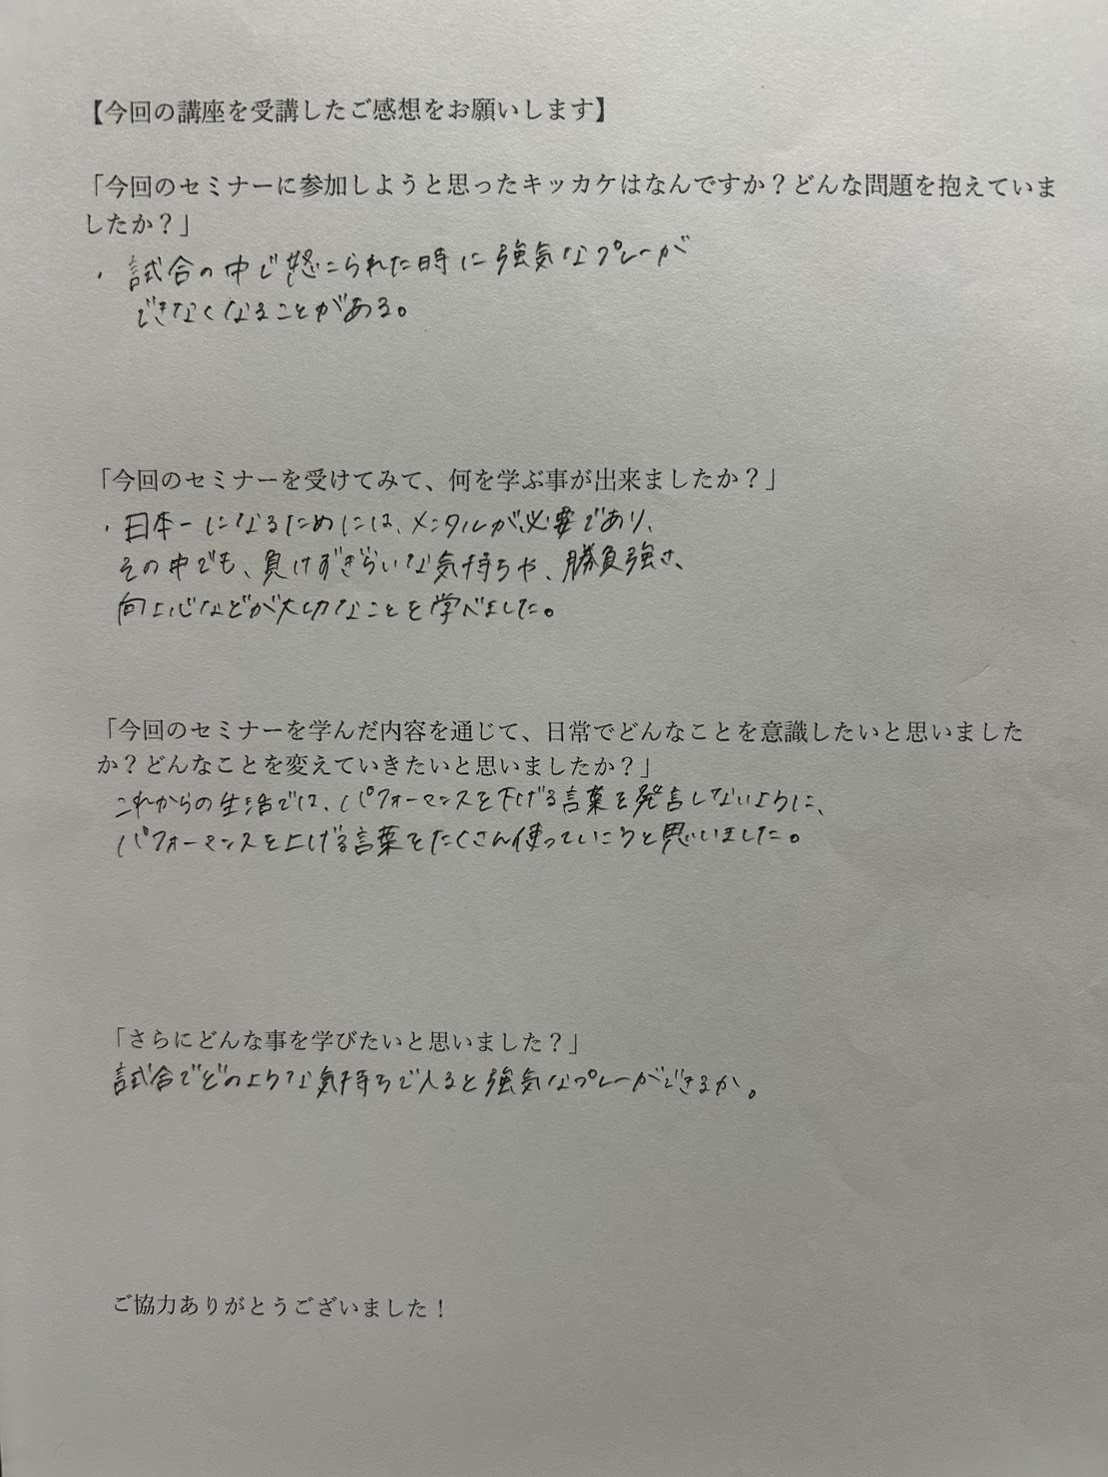 【今回の講座を受講したご感想をお願いします】
「今回のセミナーに参加しようと思ったキッカケはなんですか？どんな問題を抱えていま
したか？」
・試合の中で怒こられた時に強気なプレーが
できなくなることがある。
「今回のセミナーを受けてみて、何を学ぶ事が出来ましたか？」
・日本一になるためには、メンタルが必要であり、
その中でも、負けずぎらいな気持ちや、勝負強さ、
向上心などが大切なことを学べました。
「今回のセミナーを学んだ内容を通じて、日常でどんなことを意識したいと思いました
か？どんなことを変えていきたいと思いましたか？」
これからの生活では、パフォーマンスを下げる言葉を発言しないように、
パフォーマンスを上げる言葉をたくさん使っていこうと思いました。
「さらにどんな事を学びたいと思いました？」
試合でどのような気持ちで入ると強気なプレーができるか。
ご協力ありがとうございました！